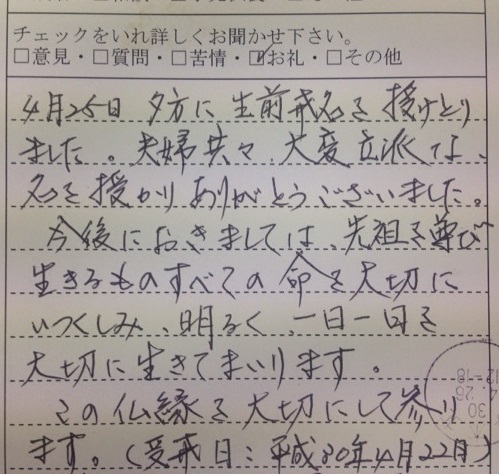 チェックをいれ詳しくお聞かせ下さい。
□意見・□質問・□苦情・☑お礼・□その他
4月25日 夕方に、生前戒名を授けとり
ました。夫婦共々、大変立派な、
名を授かりありがとうございました。
今後におきましては、先祖を尊び
生きるものすべての命を大切に
いつくしみ、明るく、一日一日を
大切に生きてまいります。
この仏縁を大切にして参り
ます。(受戒日:平成30年4月22日)